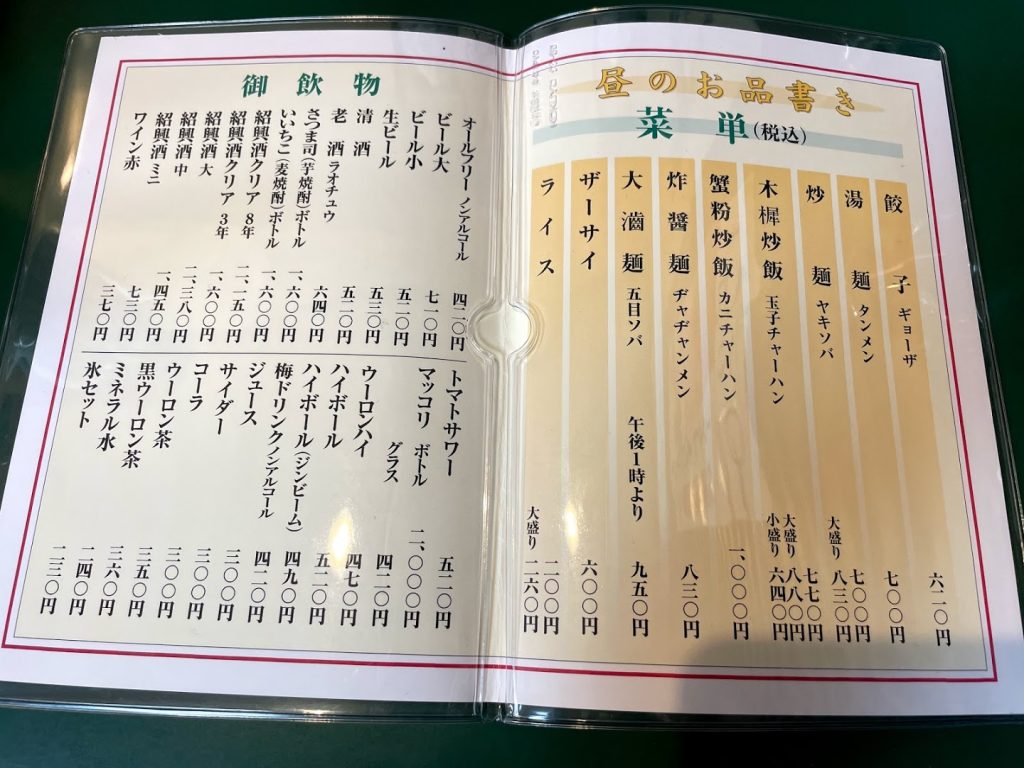 昼のお品書き
菜単(税込)
餃子 ギョーザ 六二〇円
湯麺 タンメン 七〇〇円
炒麺 ヤキソバ 七〇〇円
大盛り 八三〇円
木樨炒飯 玉子チャーハン 七七〇円
大盛り 八八〇円
小盛り 六四〇円
蟹粉炒飯 カニチャーハン 一、〇〇〇円
炸醤麺 ヂャヂャンメン 八三〇円
大滷麺 五目ソバ 午後1時より 九五〇円
ザーサイ 六〇〇円
ライス 二〇〇円
大盛り 二六〇円
御飲物
オールフリー ノンアルコール 四二〇円
ビール大 七一〇円
ビール小 五二〇円
生ビール 五三〇円
清酒 五二〇円
老酒 ラオチュウ 六四〇円
さつま司(芋焼酎)ボトル 一、六〇〇円
いいちこ(麦焼酎)ボトル 一、六〇〇円
紹興酒クリア 8年 二、一五〇円
紹興酒クリア 3年 一、六〇〇円
紹興酒 大 二、三八〇円
紹興酒 中 一、四五〇円
紹興酒 ミニ 七三〇円
ワイン赤 三七〇円
トマトサワー 五二〇円
マッコリ ボトル 二、〇〇〇円
グラス 四二〇円
ウーロンハイ 四七〇円
ハイボール 五二〇円
ハイボール(ジンビーム) 四九〇円
梅ドリンクノンアルコール 四二〇円
ジュース 三〇〇円
サイダー 三〇〇円
コーラ 三〇〇円
ウーロン茶 三五〇円
黒ウーロン茶 三六〇円
ミネラル水 二四〇円
氷セット 一三〇円